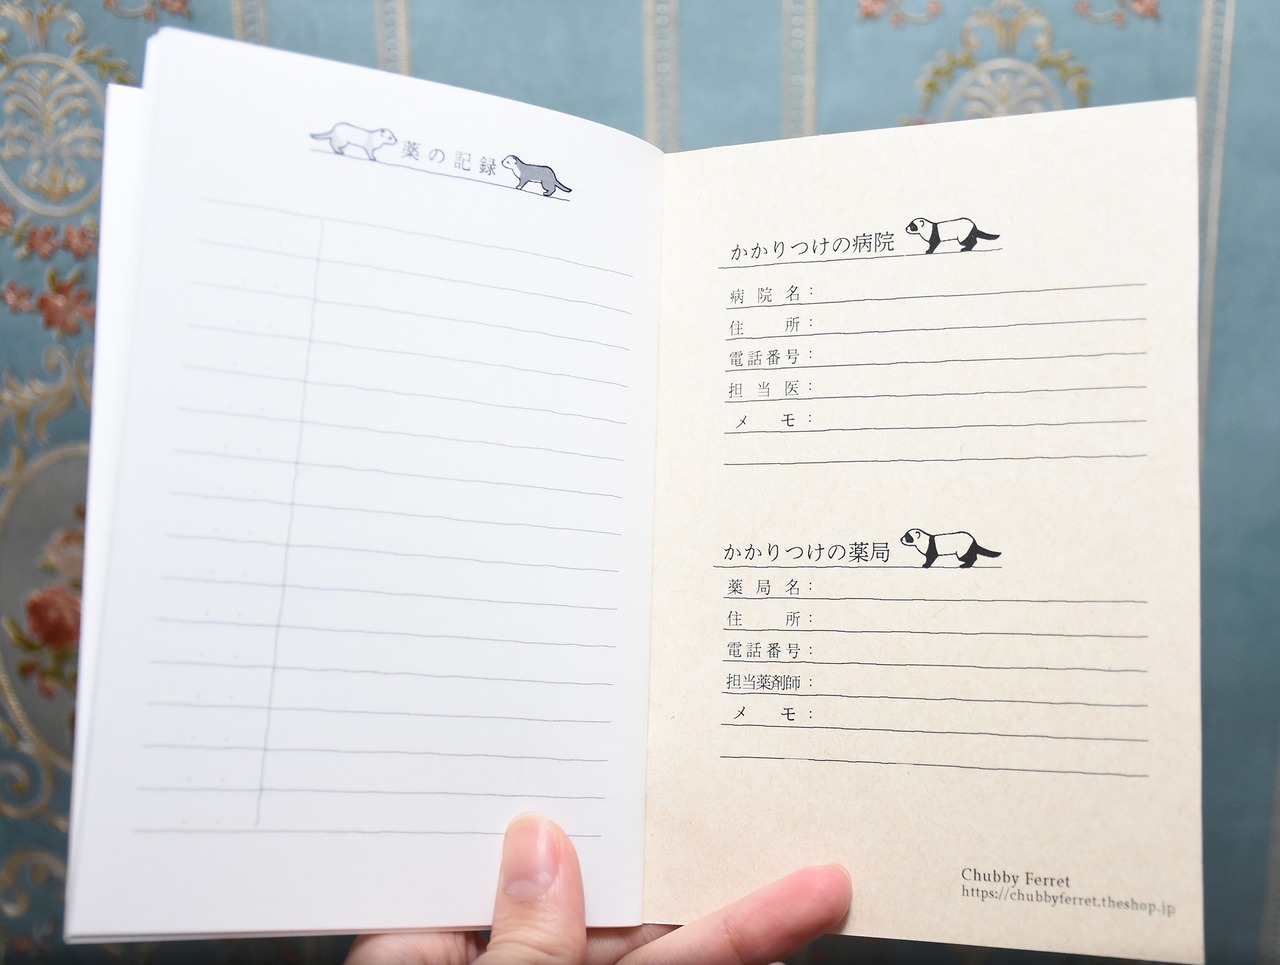 薬の記録
かかりつけの病院
病院名:
住所:
電話番号:
担当医:
メモ:
かかりつけの薬局
薬局名:
住所:
電話番号:
担当薬剤師:
メモ:
Chubby Ferret
https://chubbyferret.theshop.jp